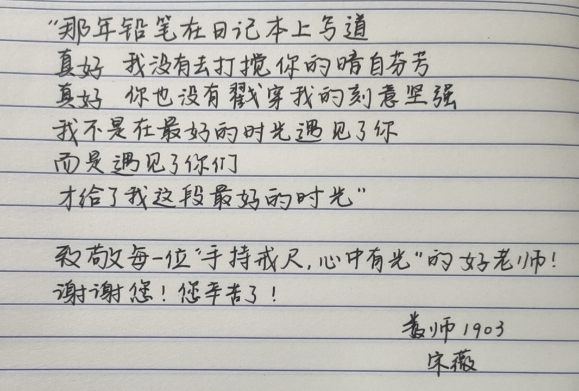 “那年铅笔在日记本上写道
真好 我没有去打搅你的暗自芬芳
真好 你也没有戳穿我的刻意坚强
我不是在最好的时光遇见了你
而是遇见了你们
才给了我这段最好的时光”
致敬每一位“手持戒尺,心中有光”的好老师!
谢谢您!您辛苦了!
数师1903
宋薇